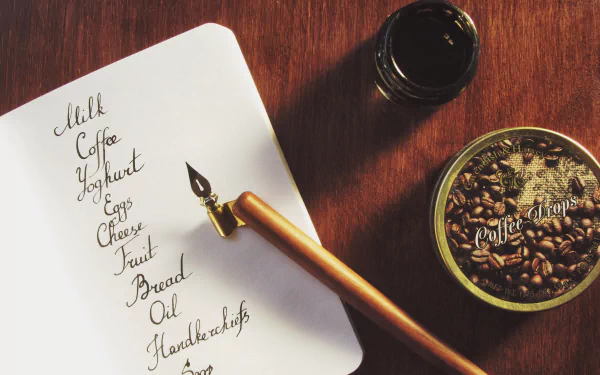 Milk
Coffee
Yoghurt
Eggs
Cheese
Fruit
Bread
Oil
Handkerchiefs
Coffee Drops